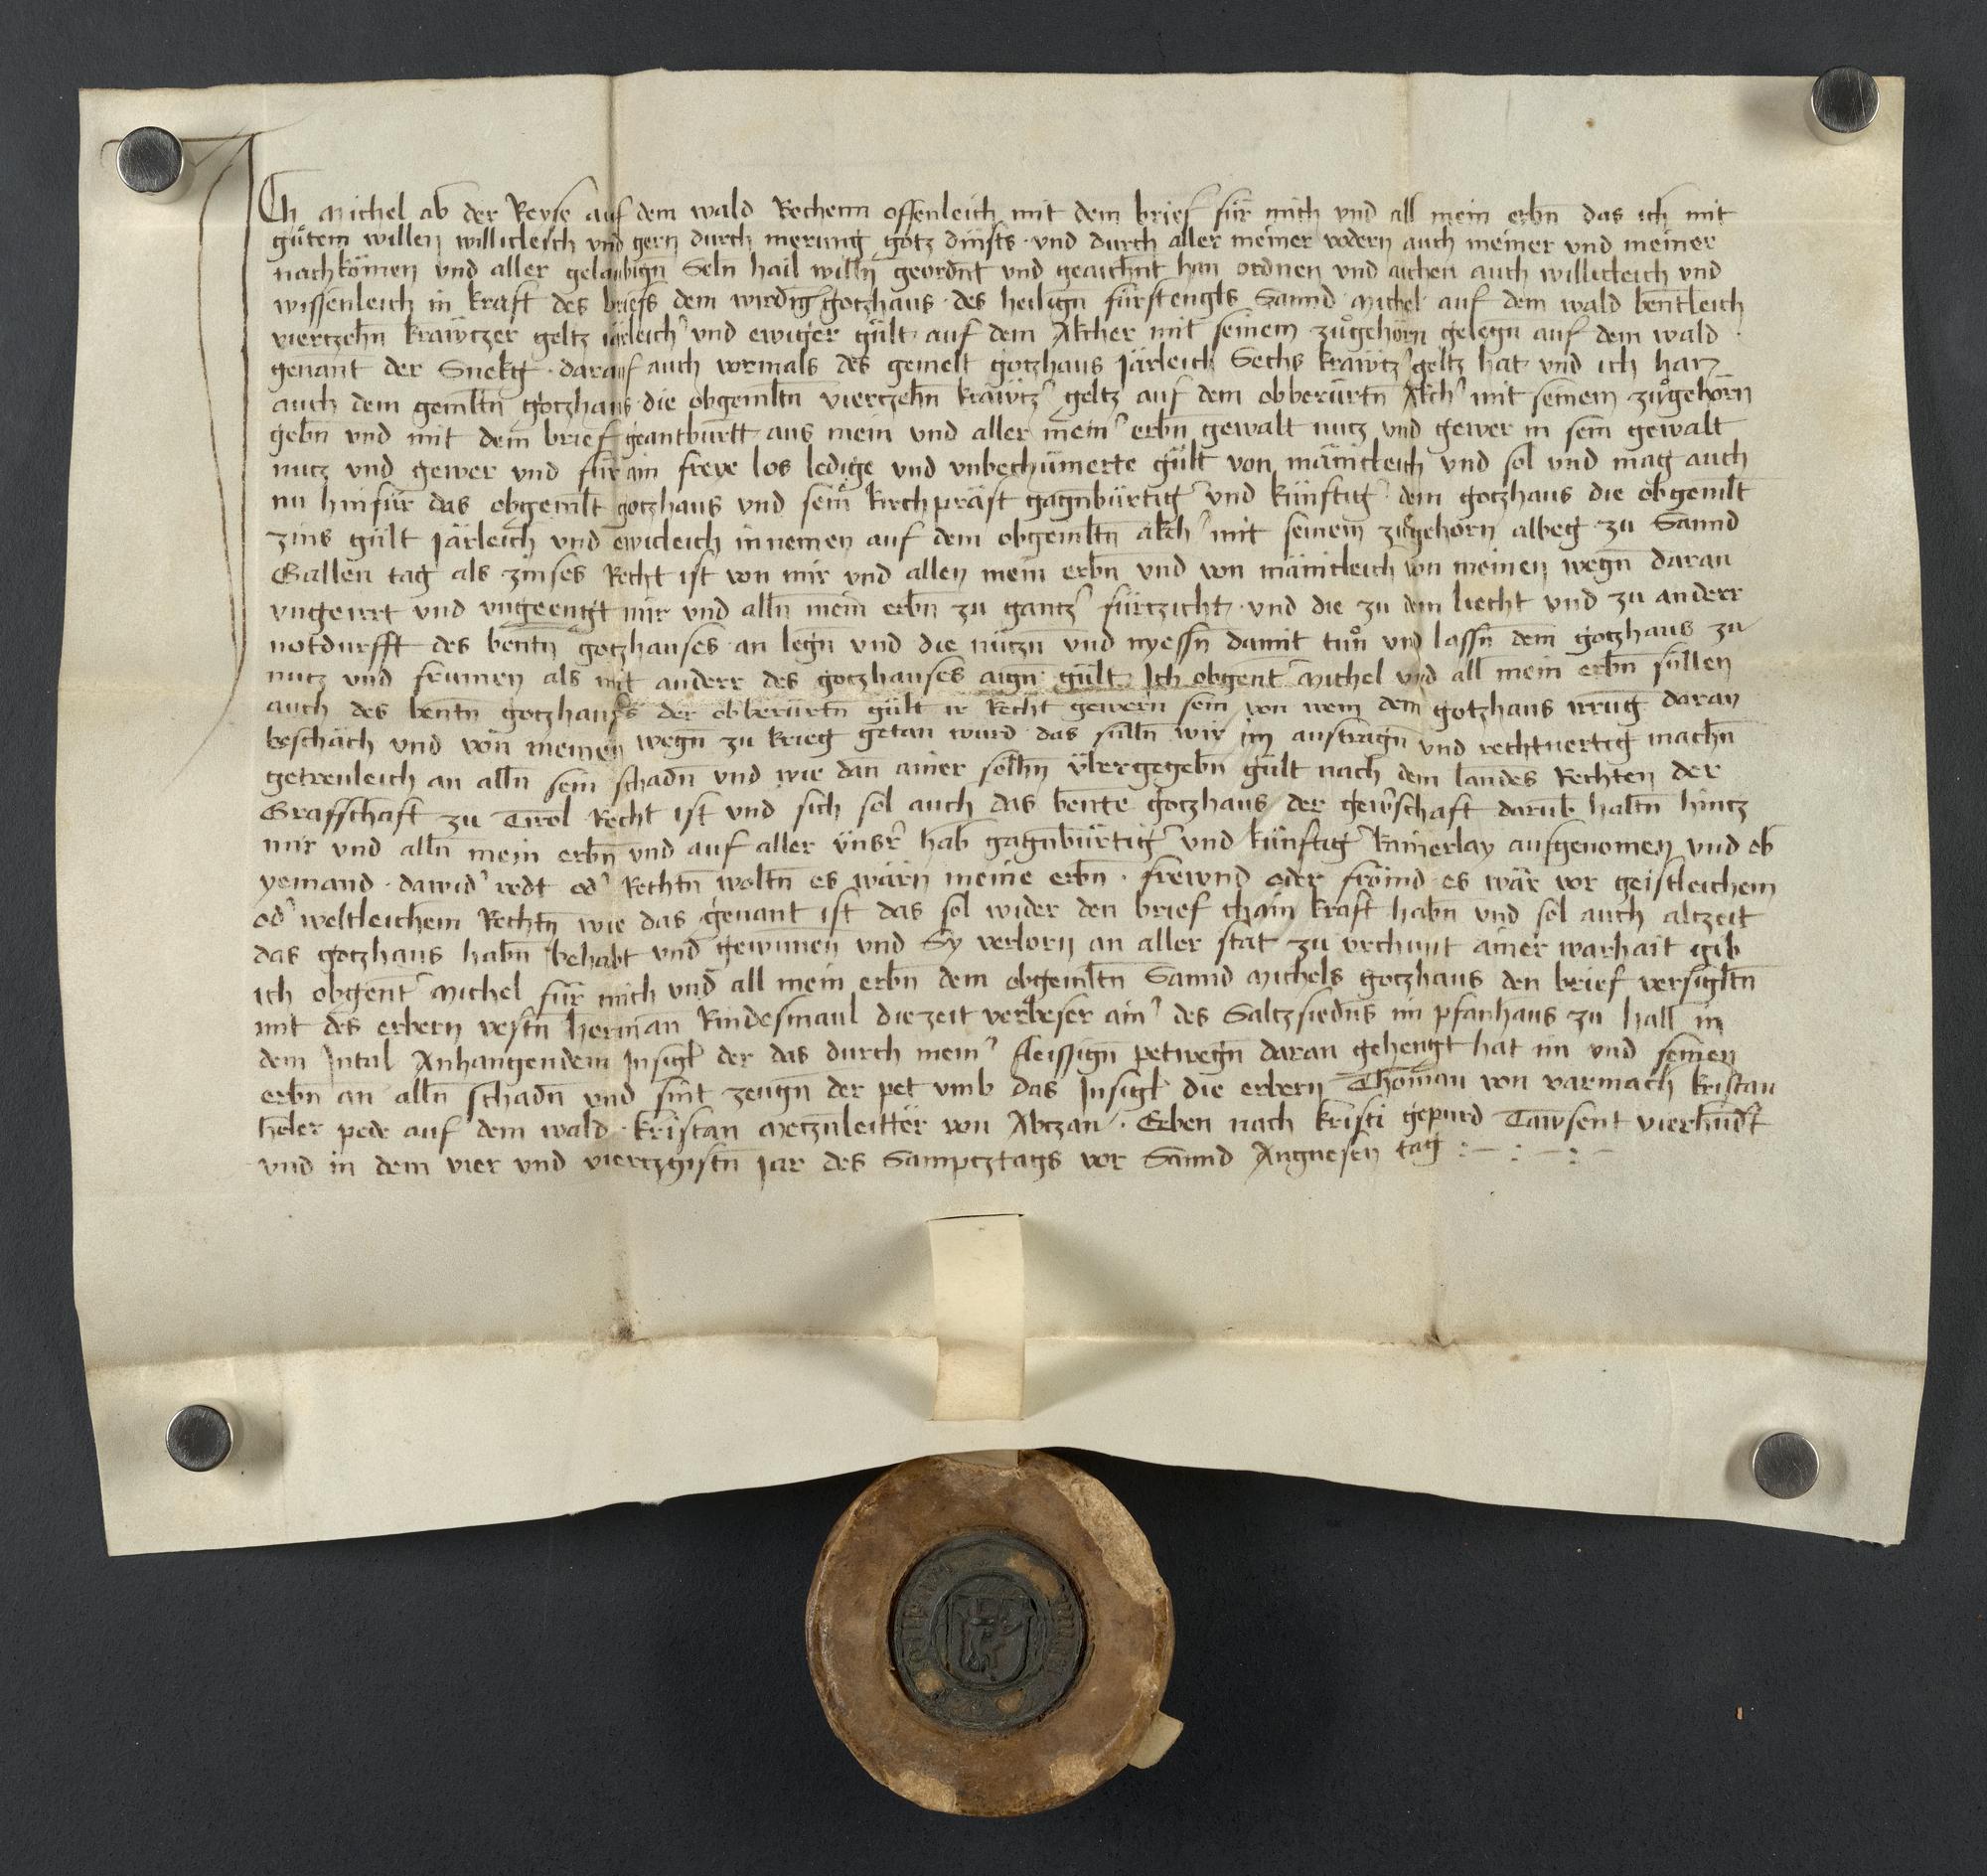 Ich Michel ab der Reyse auf dem wald Rechenn offenleich mit dem brief für mich vnd all mein erbn̄ das ich mit
gůtem willen willicleich vnd gern durch merung gotz dinsts · vnd durch aller meiner vodern auch meiner vnd meiner
nachkömen vnd aller gelaubign̄ Seln̄ hail willn̄ geordn̄t vnd geaichn̄t han ordnen vnd aichen auch willicleich vnd
wissenleich in kraft des briefs dem wirdiḡ gotzhaus · des heilign̄ fürstengls Sannd Michel auf dem wald ben̄tleich
viertzehn̄ kräwtzer geltz iärleichͬ vnd ewiger gült auf dem Akcher mit seinem zůgehörn gelegn̄ auf dem wald
genant der Snekg · darauf auch vormals des gemelt gotzhaus Järleich Sechs kräwtzͬ geltz hat vnd ich han
auch dem gemltn̄ gotzhaus · die obgemltn̄ viertzehn̄ kräwtzͬ geltz auf dem obberürtn̄ Akchͬ mit seinem zůgehörn
gebn̄ vnd mit dem brief geantburtt aus mein vnd aller meinͬ erbn̄ gewalt nutz vnd gewer in sein gewalt
nutz vnd gewer vnd für ain freye los ledige vnd vnbechümerte gült von mänicleich vnd sol vnd mag auch
nu hinfür das obgemlt gotzhaus vnd sein kirchpräst gagn̄bürtigͬ vnd künftigͬ dem gotzhaus die obgemlt
zins gült Järleich vnd ewicleich innemen auf dem obgemltn̄ akchͬ mit seinem zůgehörn albeg zu Sannd
Gallen tag als zinses Recht ist von mir vnd allen mein erbn̄ vnd von mänicleich von meinen wegn̄ daran
vngeirrt vnd vngeengt mir vnd alln̄ mein erbn̄ zu gantzͬ fürtzicht · vnd die zu dem liecht vnd zu anderr
notdurfft des ben̄tn̄ gotzhauses an legn̄ vnd die nützn̄ vnd nyessn̄ damit tůn vnd lassn̄ dem gotzhaus zu
nutz vnd frumen als mit anderr des gotzhauses aign̄ gült Ich obgen̄t Michel vnd all mein erbn̄ süllen
auch des ben̄tn̄ gotzhauses der obberürtn̄ gült ir Recht gewern sein von wem dem gotzhaus irrūg daran
beschäch vnd von meinen wegn̄ zu krieg getan wurd das sülln̄ wir im austragn̄ vnd rechtuertig machn̄
getreuleich an alln̄ sein schadn̄ vnd wie dan ainer solhn̄ übergegebn̄ gült nach dem landes Rechten der
Grafschaft zu Tirol Recht ist vnd sich sol auch das ben̄te gotzhaus der gewͬschaft darūb haltn̄ hintz
mir vnd alln̄ mein erbn̄ vnd auf aller vnsͬr hab gagn̄bürtigͬ vnd künftigͬ kainerlay ausgenomen vnd ob
yemand · dawidͬ redt odͬ Rechtn̄ woltn̄ es wärn meine erbn̄ · frewnd oder frömd es wär vor geistleichem
odͬ weltleichem Rechtn̄ wie das genant ist das sol wider den brief chain kraft habn̄ vnd sol auch altzeit
das gotzhaus habn̄ behabt vnd gewunnen vnd Sy verlorn an aller stat zu vrchunt ainer warhait gib
ich obgen̄t Michel für mich vnd all mein erbn̄ dem obgemltn̄ Sannd Michels gotzhaus den brief versigltn̄
mit des erbern vestn̄ herman Rindesmaul die zeit verbeser ainͬ des Saltzsiedn̄s im pfanhaus zu hall in
dem Jntal Anhangendem Jnsigl der das durch meinͬ fleissign̄ petwegn̄ daran gehengt hat im vnd seinen
erbn̄ an alln̄ schadn̄ vnd sint zeugn̄ der pet vmb das Jnsigl die erbern Thöman von varmach kristan
heler pede auf dem wald · kristan Metzn̄leitter von Abtzan · Erben nach kristi gepurd Tawsent vierhūdͬt
vnd in dem vier vnd viertzgistn̄ Jar des Samptztags vor Sannd Angnesen tag : — : — : —